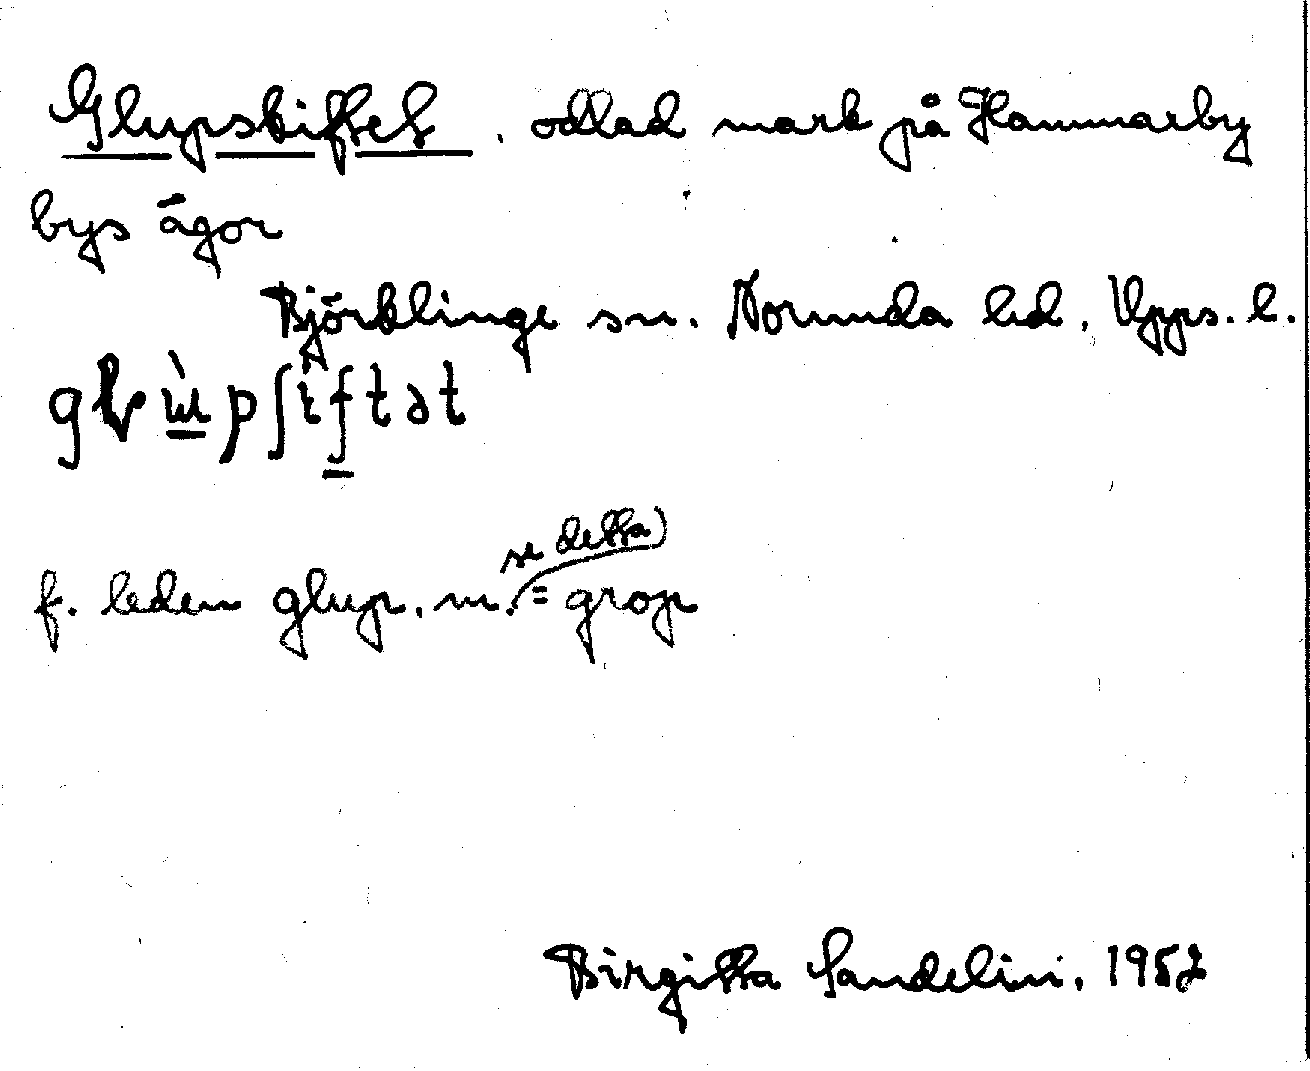 Glupskiftet, odlad mark på Hammarby
bys ägor
Björklinge sn. Norunda hd, Upps. l.
f. leden glup, m. (se detta) = grop
Birgitta Sandelin, 1952